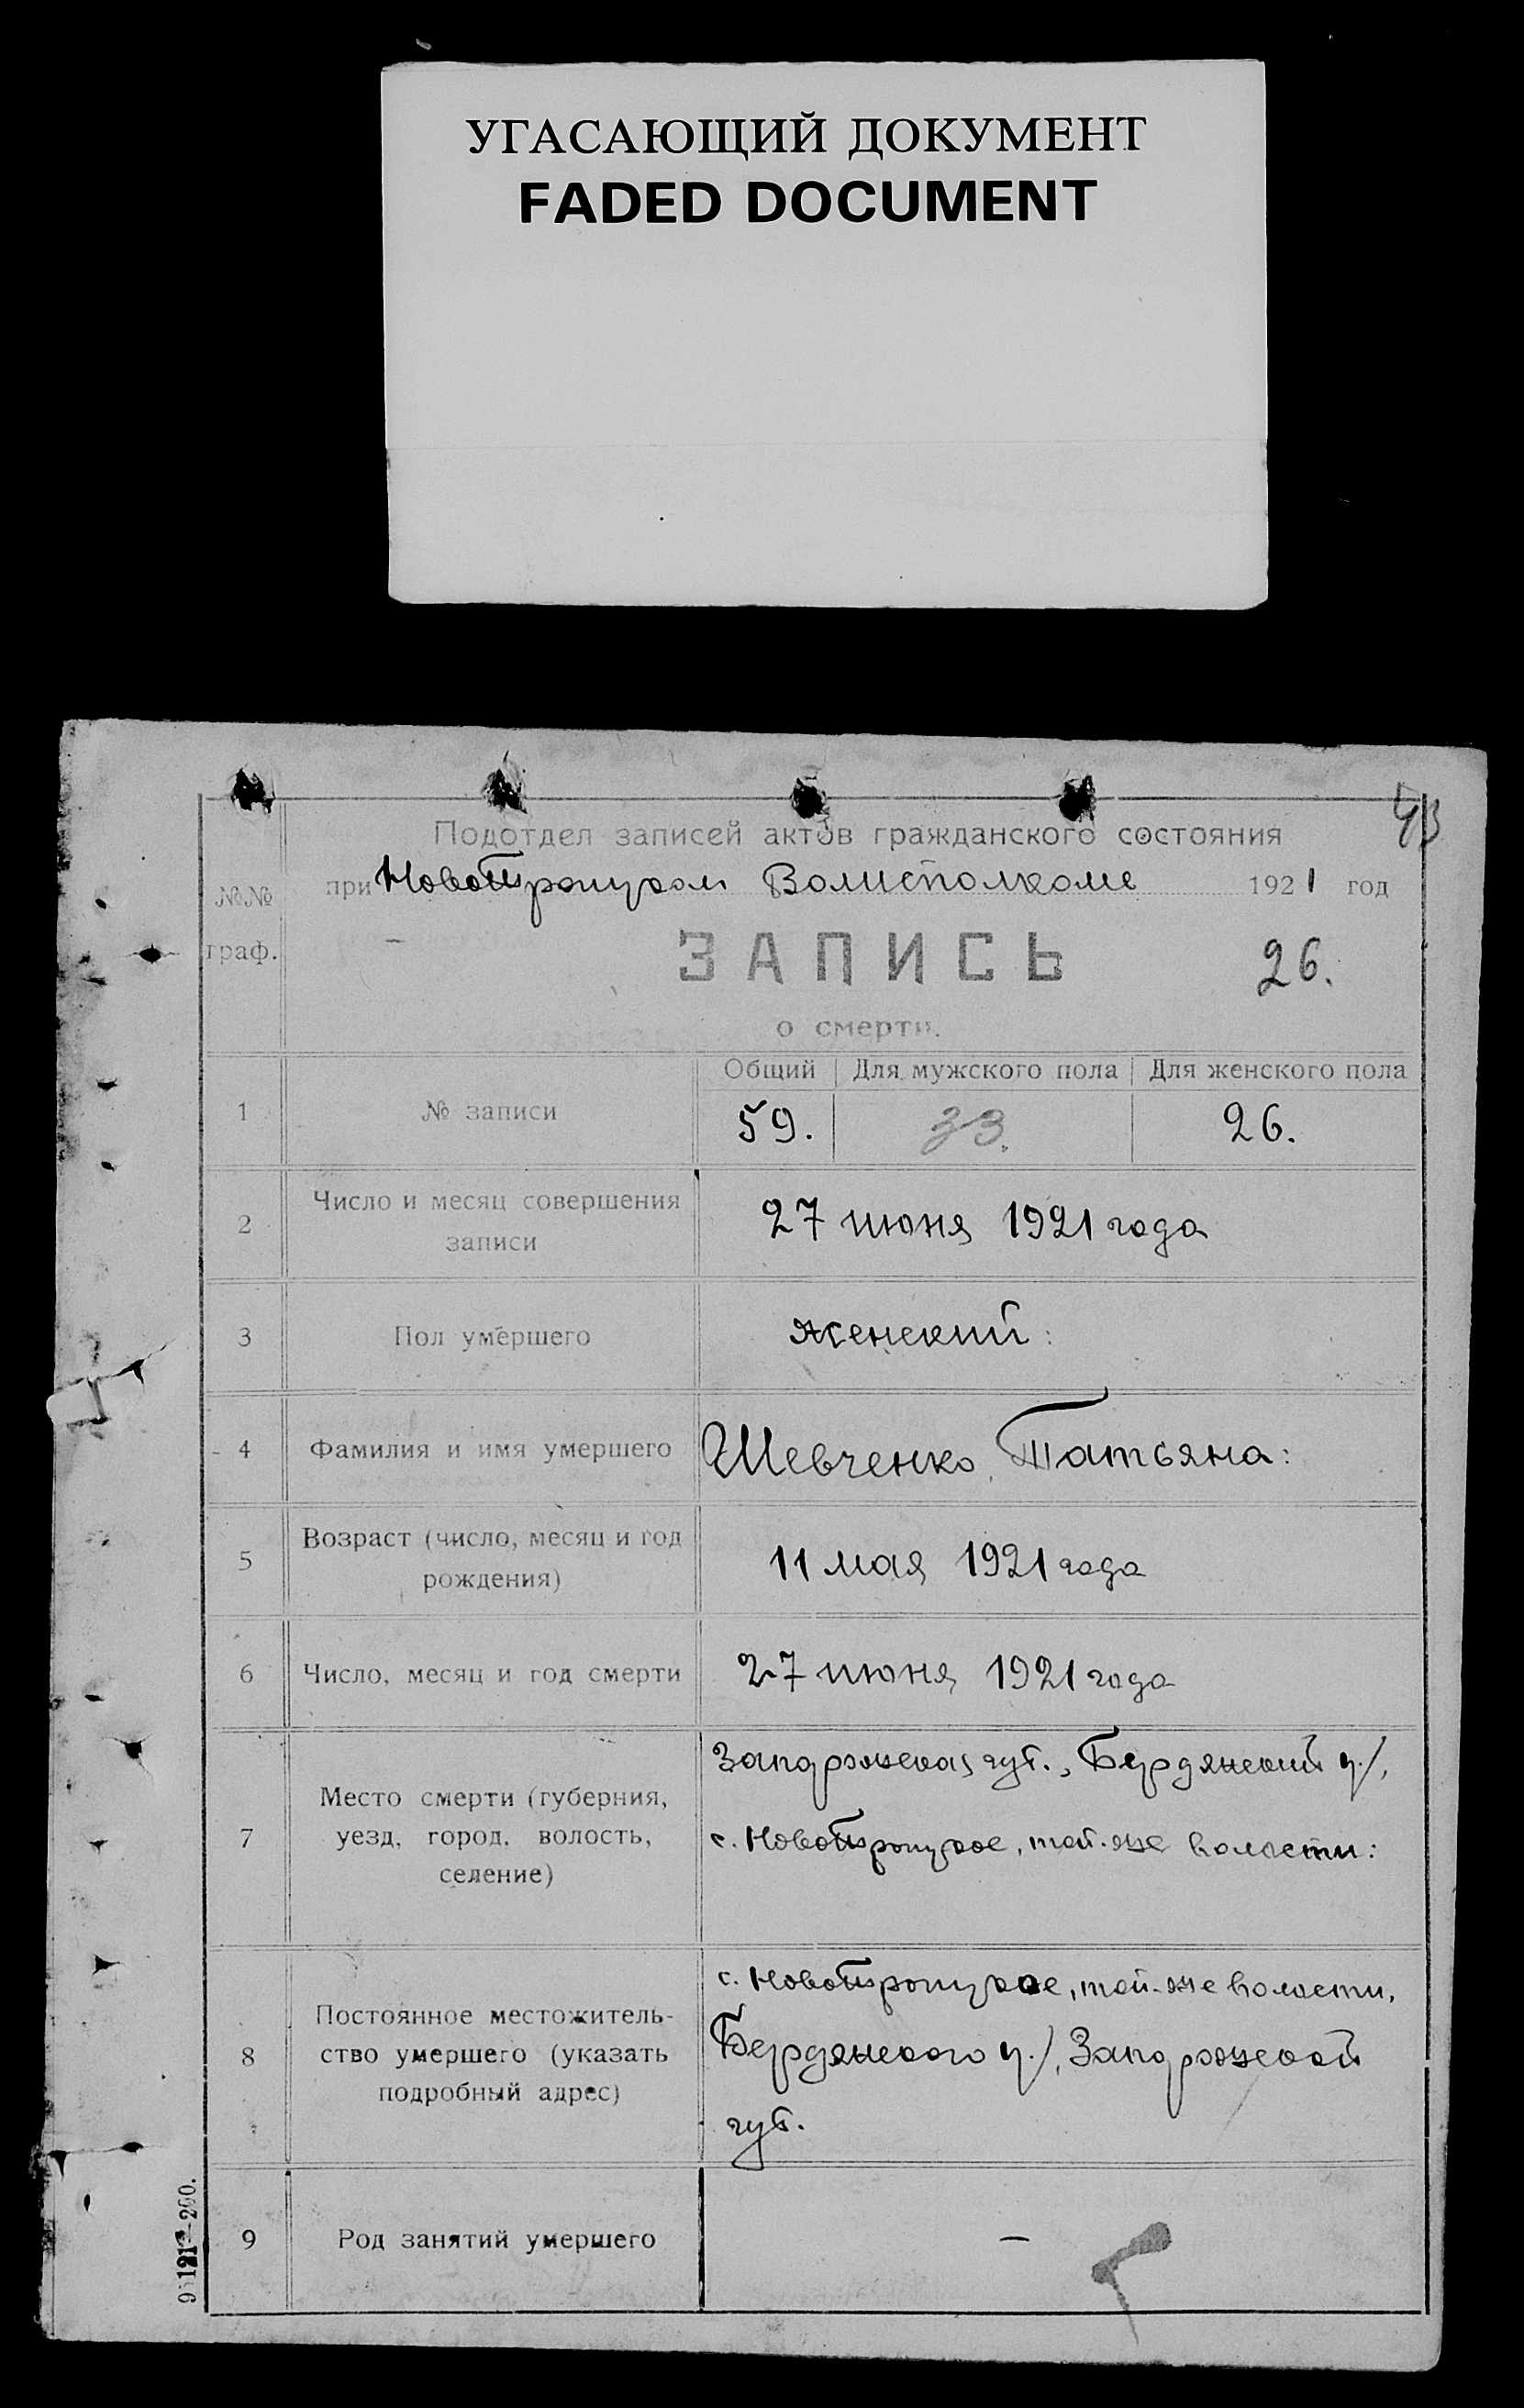 УГАСАЮЩИЙ ДОКУМЕНТ
FADED DOCUMENT
43
Подотдел записей актов гражданского состояния
при Новотроицком Волисполкоме 1921 год
№№
граф.
ЗАПИСЬ
26.
о смерти.
Общий Для мужского пола Для женского пола
1 № записи 59. 33. 26.
2 Число и месяц совершения
записи
27 июня 1921 года
3 Пол умершего женский:
4 Фамилия и имя умершего Шевченко Татьяна:
5 Возраст (число, месяц и год
рождения)
11 мая 1921 года
6 Число, месяц и год смерти 27 июня 1921 года
7 Место смерти (губерния,
уезд, город, волость,
селение)
Запорожская губ., Бердянский у./,
с. Новотроицкое, той-же волости:
8 Постоянное местожитель-
ство умершего (указать
подробный адрес)
с. Новотроицкое, той-же волости,
Бердянского у./, Запорожской
губ.
9 Род занятий умершего —